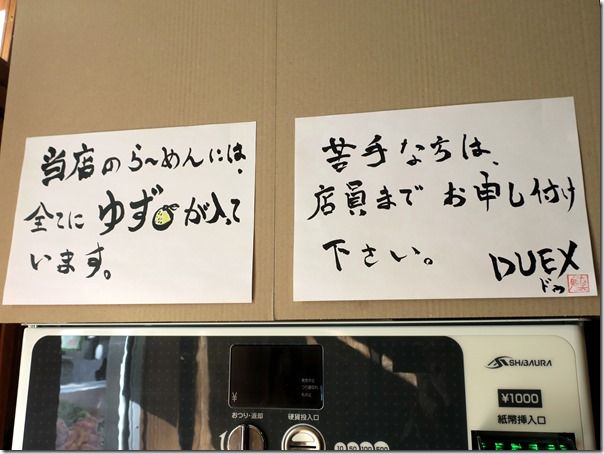 当店のらーめんには、
全てにゆずが入って
います。
苦手な方は、
店員まで お申し付け
下さい。
DUEX
ドゥ
SHIBAURA
¥1000
紙幣挿入口
¥
おつり・返却
硬貨投入口
10 50 100 500